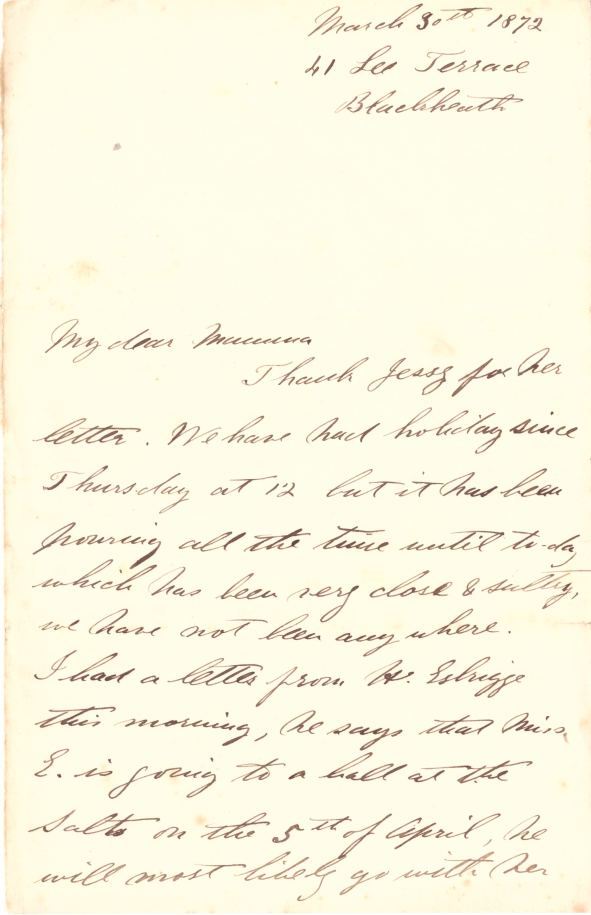 March 30th 1872
41 Lee Terrace
Blackheath
My dear Mamma
Thank Jessy for her
letter. We have had holiday since
Thursday at 12 but it has been
pouring all the time until to-day
which has been very close & sultry,
we have not been anywhere.
I had a letter from H. Eskrigge
this morning, he says that Miss
E. is going to a ball at the
Salts on the 5th of April, he
will most likely go with her